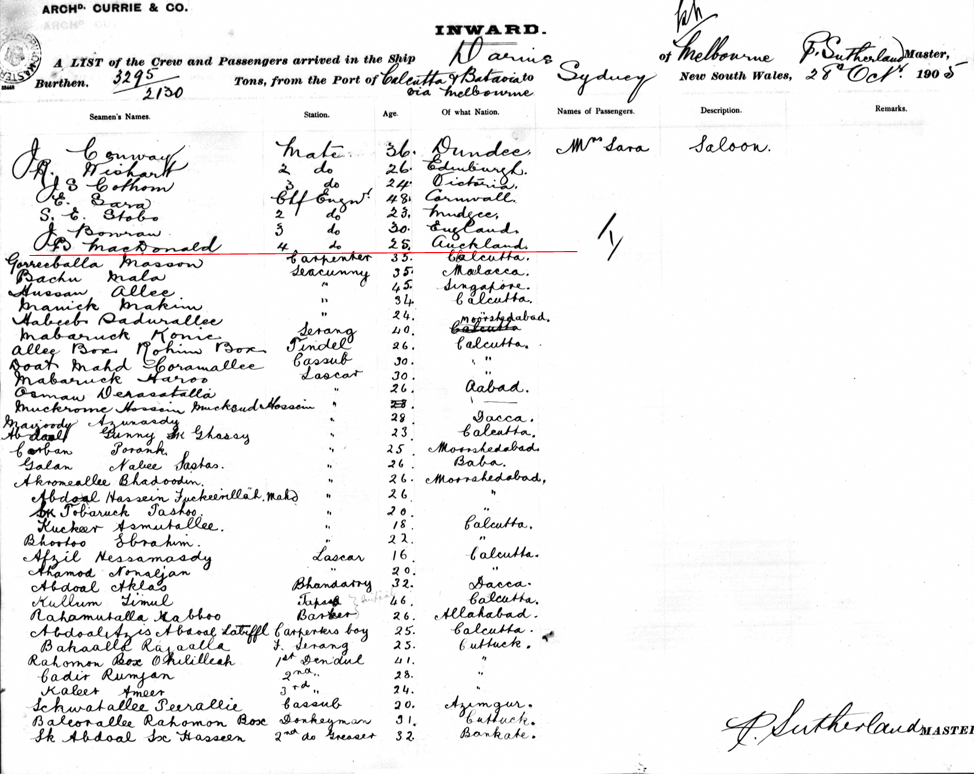 ARCHD. CURRIE & CO.
INWARD.
A LIST of the Crew and Passengers arrived in the Ship Darius of Melbourne P. Sutherland Master,
Burthen. 3295/2130 Tons, from the Port of Calcutta & Batavia to Sydney New South Wales, 29th Octr. 1905
via Melbourne
Seamen's Names. Station. Age. Of what Nation. Names of Passengers. Description. Remarks.
J. Conway Mate 36. Dundee. Mrs Sara Saloon.
Wishart 2 do 26. Edinburgh.
J S Cothom 3 do 24. Victoria.
E. Sara Chf Engnr. 48. Cornwall.
S. E. Stobo 2 do 23. Mudgee.
J. Bowran 3 do 30. England.
J B MacDonald 4 do 25. Auckland.
Gorreeballa Masson Carpenter 33. Calcutta.
Bachu Mala Seacunny 35. Malacca.
Hussan Allee " 45. Singapore.
Manick Makim " 34 Calcutta.
Habeeb Sadurallee " 24. Moorshedabad.
Mabaruck Konie Serang 40. Calcutta
Allee Box Rohim Box Tindel 26. Calcutta.
Doat Mahd Coramallee Cassub 30. "
Mabaruck Haroo Lascar 30. "
Osman Derasatalla " 26. Aabad.
Muckrome Hossein Muckoud Hossein " 28.
Azunasdy " 28 Dacca.
Abdool Gunny Sk Ghassy " 23 Calcutta.
Corban Porank " 25 Moorshedabad.
Golan Nabee Sastas. " 26 Baba.
Akromeallee Bhadoodin. " 26. Moorshedabad,
Abdoal Hassein Mahd " 26 "
Sk Tobaruck Tashoo. " 20. "
Kucheer Asmutallee. " 18 Calcutta.
Bhootoo Ebrahim. " 22. "
Afzil Nessamasdy Lascar 16 Calcutta.
Ahamod Nonaljan " 20. "
Abdoal Aklas Bhandarry 32. Dacca.
Kullum Simul 46. Calcutta.
Rahamutalla Habboo Barber 26. Allahabad.
Abdoal Azis Abdoal Latiff Carpenters boy 25. Calcutta.
Bahaalla Rajaalla F. Serang 25. Cuttuck.
Rahomon Box Ohilillah 1st Dendul 41. "
Cadir Rumjan 2nd " 28. "
Kaleer Ameer 3rd " 24. "
Schwatallee Peerallie Cassub 20. Azimgur.
Balcorallee Rahomon Box Donkeyman 31. Cuttuck.
Sk Abdoal Sx Hasseen 2nd do Greaser 32. Bankate.
P. Sutherland MASTER